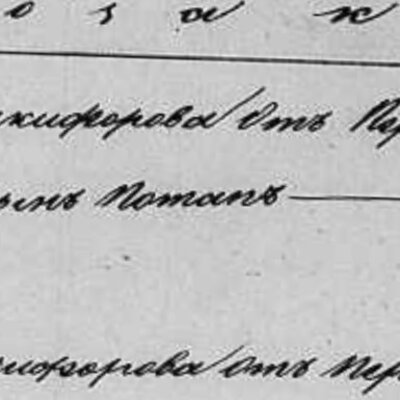 о з а к
икифорова отъ Пер
сынъ Потапъ
кифорова отъ Пер